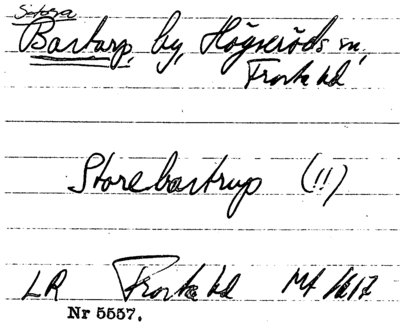 Stora
Bastarp, by, Högseröds sn,
Frosta hd
Storebastrup (!!)
LR Frosta hd Mf 1617
Nr 5557.